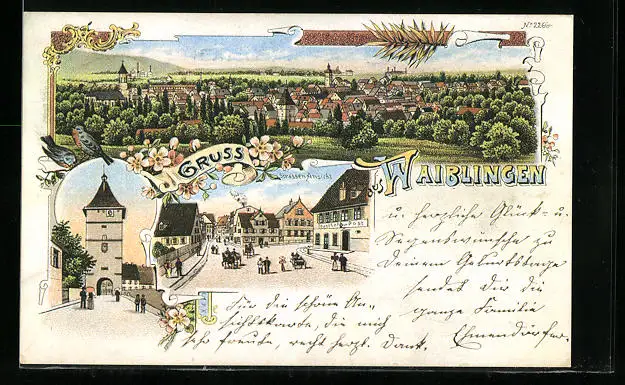 No. 2260
GRUSS
aus WAIBLINGEN
Strassen-Ansicht
Gasthof z. Post
u. herzliche Glück- u.
Segenswünsche zu
Deinem Geburtstage
sendet Dir die
ganze Familie
Für die schöne An-
sichtskarte, die mich
sehr freute, recht herzl. Dank.